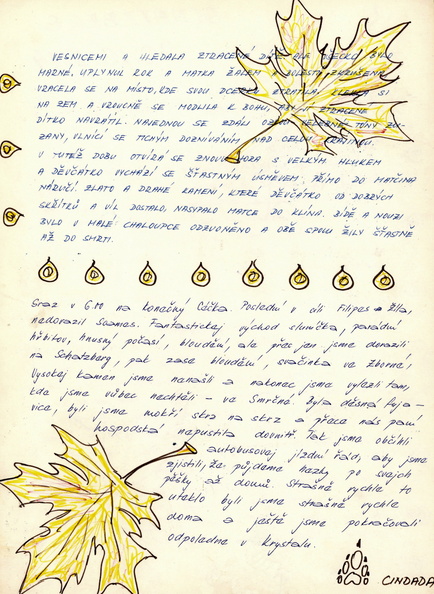 VESNICEMI A HLEDALA ZTRACENÉ DÍTĚ. ALE VŠECKO BYLO
MARNÉ, UPLYNUL ROK A MATKA ŽALEM A BOLESTÍ ZNIČENÁ
VRACELA SE NA MÍSTO, KDE SVOU DCERKU ZTRATILA. KLEKLA SI
NA ZEM A VROUCNĚ SE MODLILA K BOHU, ABY JÍ ZTRACENÉ
DÍTKO NAVRÁTIL. NAJEDNOU SE ZDÁLI OZVALY NEBESKÉ TÓNY
VLNÍCÍ SE TICHÝM DOZNÍVÁNÍM NAD CELOU KRAJINOU.
V TUTÉŽ DOBU OTVÍRÁ SE ZNOVU HORA S VELKÝM HLUKEM
A DĚVČÁTKO VYCHÁZÍ SE ŠŤASTNÝM ÚSMĚVEM. PŘÍMO DO MATČINA
NÁRUČÍ. ZLATO A DRAHÉ KAMENÍ, KTERÉ DĚVČÁTKO OD DOBRÝCH
SKŘÍTKŮ A VÍL DOSTALO, NASYPALO MATCE DO KLÍNA. BÍDĚ A NOUZI
BYLO V MALÉ CHALOUPCE ODZVONĚNO A OBĚ SPOLU ŽILY ŠŤASTNĚ
AŽ DO SMRTI.
Sraz v 6.00 na konečný Poslední v cíli Filipes a Žlla,
nedorazil Suamas. Fantastickej východ sluníčka, parádní
hřbitov, hnusný počasí, bloudění, ale přec jen jsme dorazili
na Schatzberg, pak zase bloudění, svačinka ve Zborné,
Vysokej kamen jsme nenašli a nakonec jsme vylezli tam,
kde jsme vůbec nechtěli - ve Smrčné. Byla děsná fuja-
vice, byli jsme mokří skrz na skrz a přece nás paní
hospodská napustila dovnitř. Pak jsme občíhli
autobusovej jízdní řád, aby jsme
zjistili, že půjdeme hezky po svejch
pěšky až domů. Strašně rychle to
uteklo byli jsme strašně rychle
doma a ještě jsme pokračovali
odpoledne v Krystalu.
CINDADA